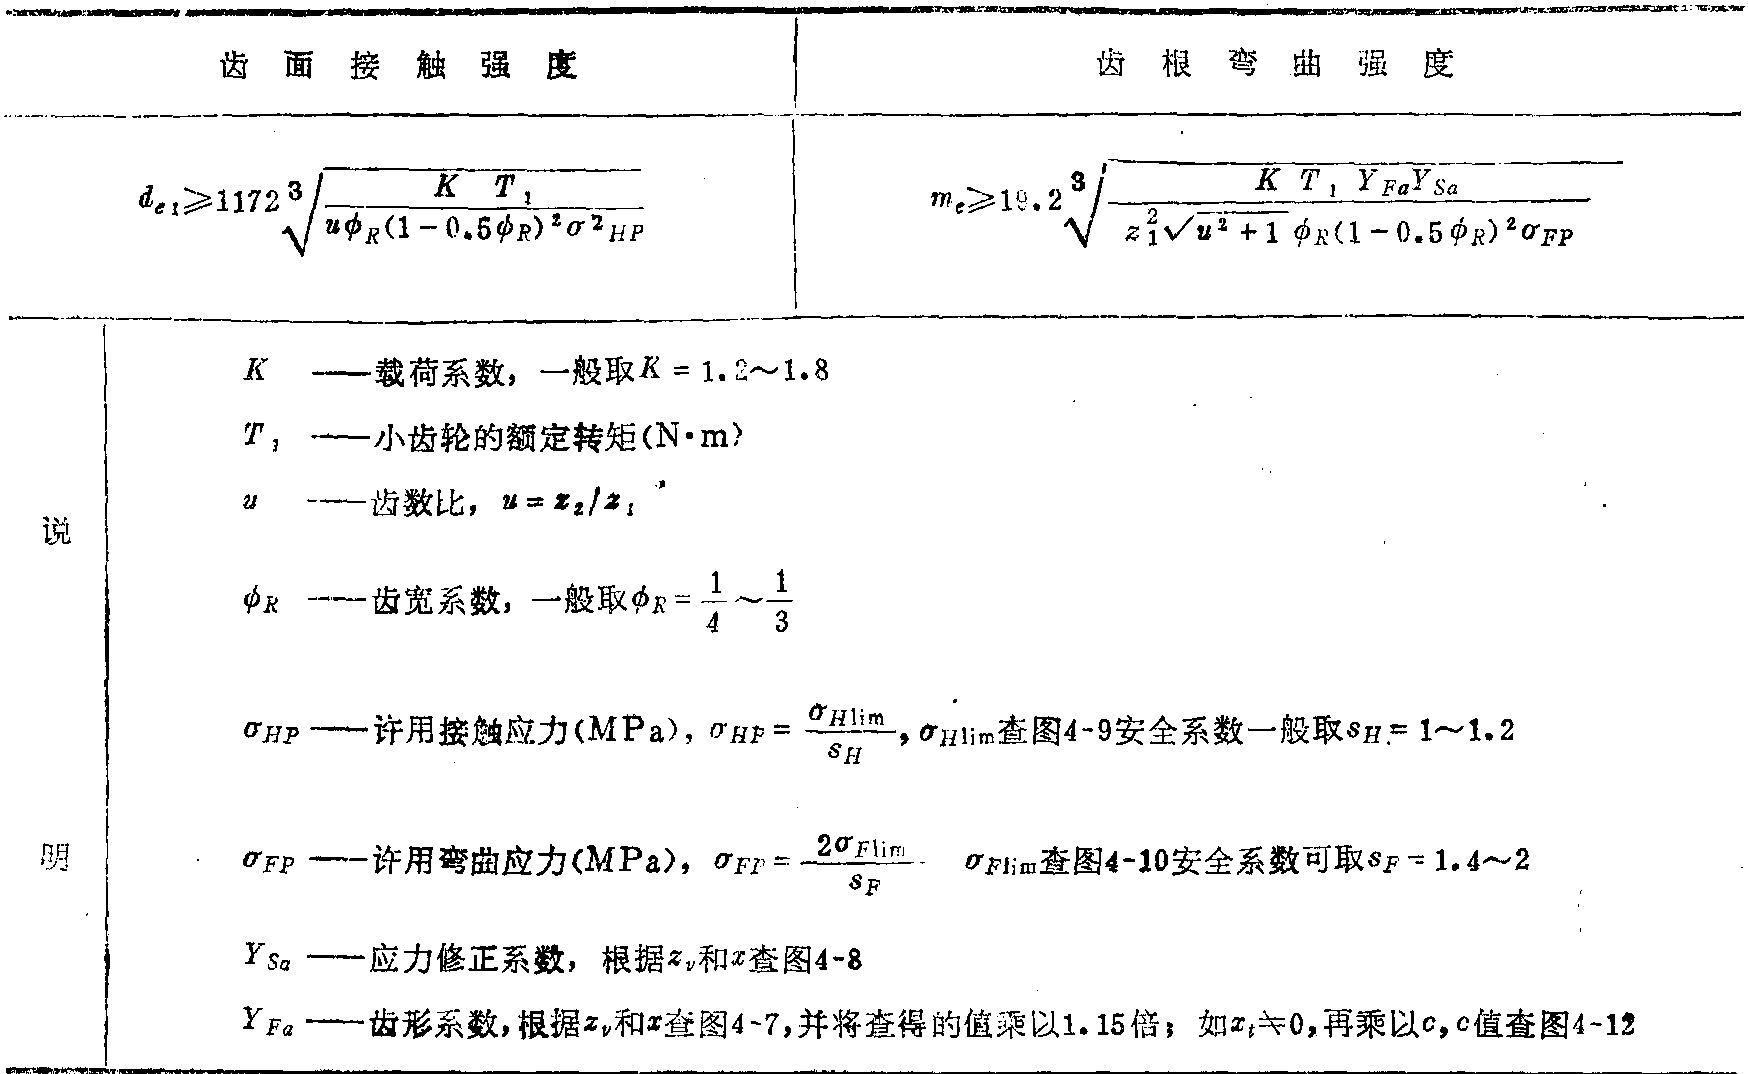 齿面接触强度 齿根弯曲强度
d_{e1}≥1172 ∛(K T_1 / (uϕ_R(1-0.5ϕ_R)²σ²_{HP})) m_e≥19.2 ∛(K T_1 Y_{Fa}Y_{Sa} / (z_1²√(u²+1) ϕ_R(1-0.5ϕ_R)²σ_{FP}))
说明
K ——载荷系数，一般取K = 1.2～1.8
T_1 ——小齿轮的额定转矩(N·m)
u ——齿数比，u = z_2/z_1
ϕ_R ——齿宽系数，一般取ϕ_R = 1/4～1/3
σ_{HP}——许用接触应力(MPa)，σ_{HP} = σ_{Hlim}/s_H，σ_{Hlim}查图4-9安全系数一般取s_H = 1～1.2
σ_{FP}——许用弯曲应力(MPa)，σ_{FP} = 2σ_{Flim}/s_F σ_{Flim}查图4-10安全系数可取s_F = 1.4～2
Y_{Sa}——应力修正系数，根据z_v和x查图4-8
Y_{Fa}——齿形系数，根据z_v和x查图4-7，并将查得的值乘以1.15倍；如x_t≒0，再乘以c，c值查图4-12